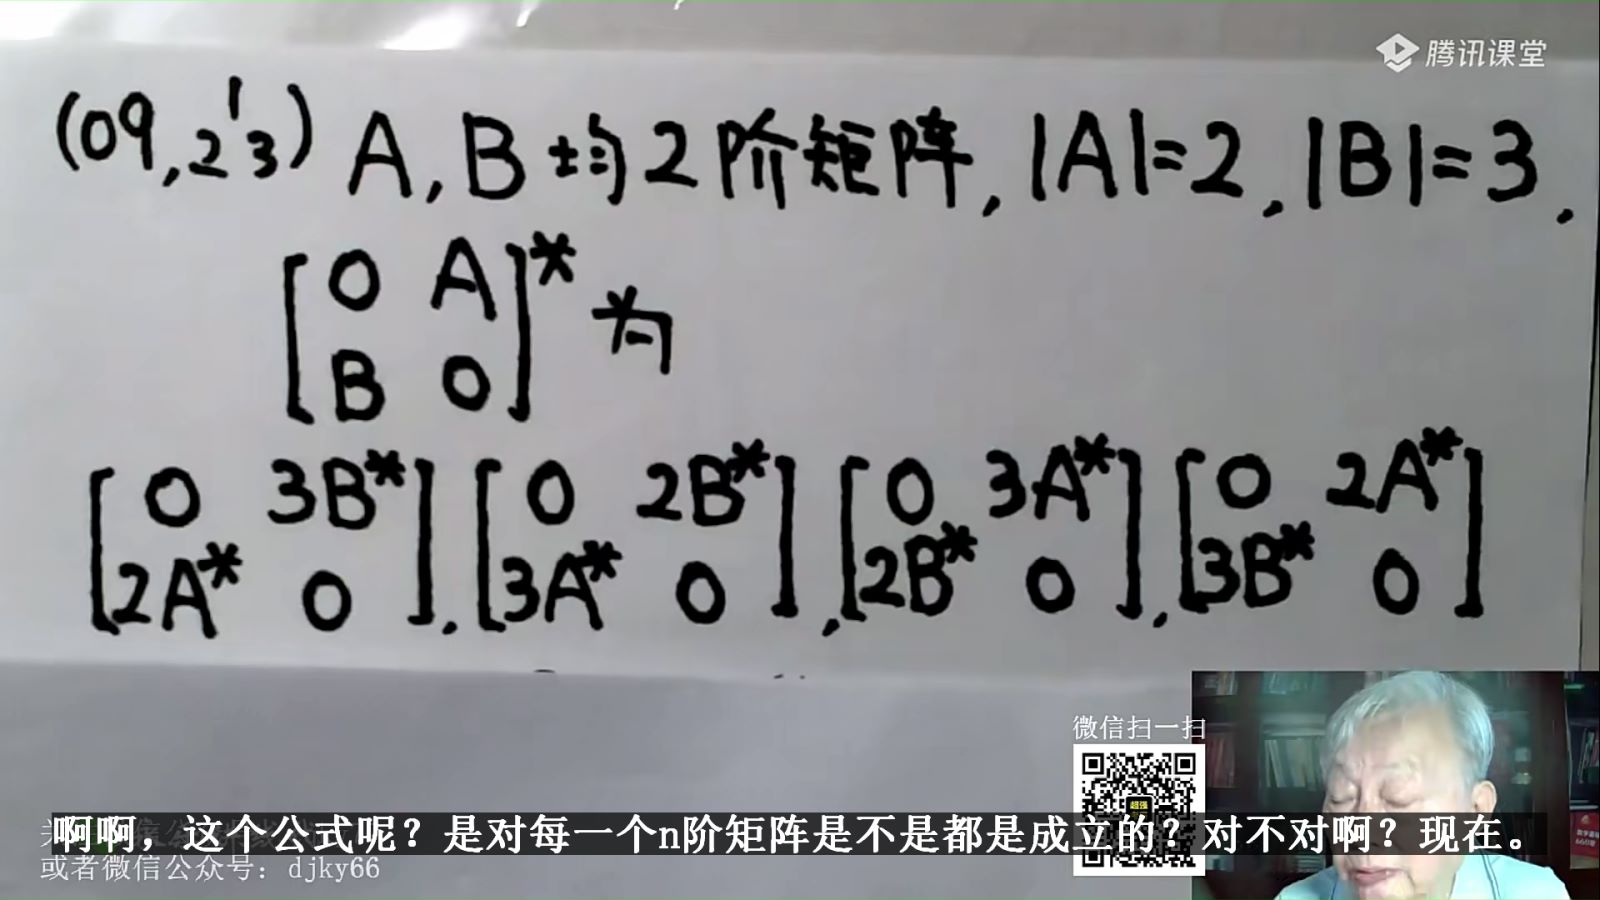 腾讯课堂
(09,2 1 3) A,B均2阶矩阵,|A|=2,|B|=3,
[0 A
B 0]* 为
[0 3B*
2A* 0],[0 2B*
3A* 0],[0 3A*
2B* 0],[0 2A*
3B* 0]
微信扫一扫
超强
啊啊，这个公式呢？是对每一个n阶矩阵是不是都是成立的？对不对啊？现在。
或者微信公众号：djky66